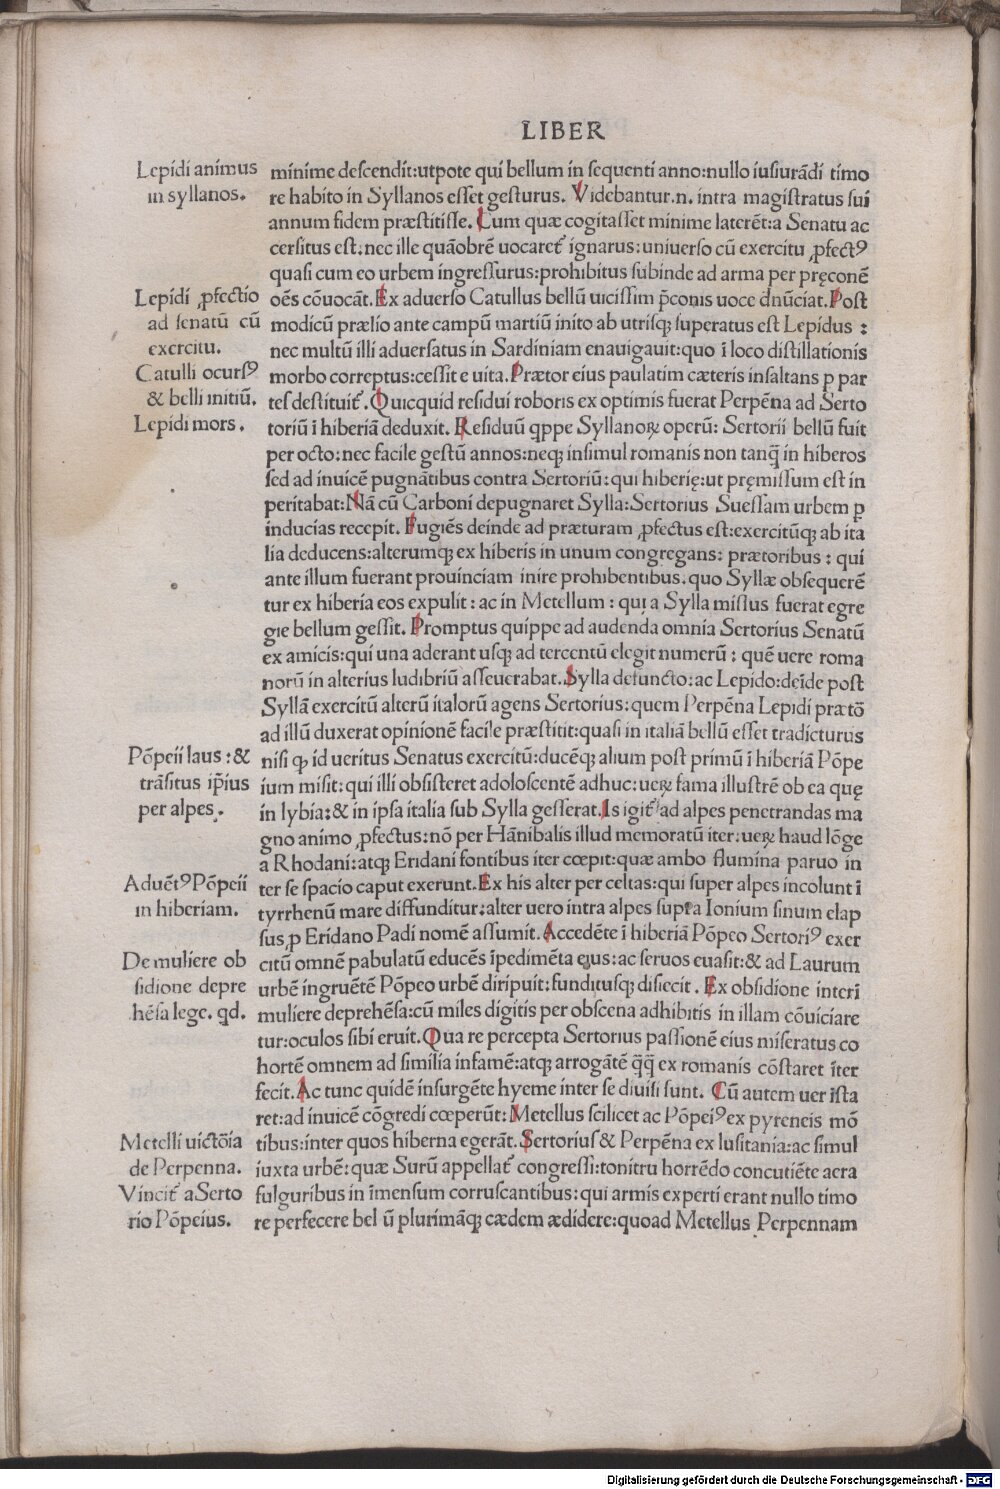 LIBER
Lepidi animus
in syllanos.
minime descendit:utpote qui bellum in sequenti anno:nullo iusiurādi timo
re habito in Syllanos esset gesturus. Videbantur.n. intra magistratus sui
annum fidem præstitisse. Cum quæ cogitasset minime laterēt:a Senatu ac
cersitus est:nec ille quāobrē uocaret᷑ ignarus:uniuerso cū exercitu ꝓfectꝰ
quasi cum eo urbem ingressurus:prohibitus subinde ad arma per pręconē
Lepidi ꝓfectio
ad senatū cū
exercitu.
Catulli ocursꝰ
& belli initiū.
Lepidi mors.
oēs cōuocāt. Ex aduerso Catullus bellū uicissim p̄conis uoce dn̄ūciat. Post
modicū prælio ante campū martiū inito ab utrisqꝫ superatus est Lepidus :
nec multū illi aduersatus in Sardiniam enauigauit:quo ī loco distillationis
morbo correptus:cessit e uita. Prætor eius paulatim cæteris insaltans ꝑ par
tes destituit᷑. Quicquid residui roboris ex optimis fuerat Perpēna ad Serto
toriū ī hiberiā deduxit. Residuū qppe Syllanoꝝ operū: Sertorii bellū fuit
per octo:nec facile gestū annos:neqꝫ insimul romanis non tanq̄ in hiberos
sed ad inuicē pugnātibus contra Sertoriū:qui hiberię:ut pręmissum est in
peritabat:Nā cū Carboni depugnaret Sylla:Sertorius Suessam urbem ꝑ
inducias recepit. Fugiēs deinde ad præturam ꝓfectus est:exercitūqꝫ ab ita
lia deducens:alterumqꝫ ex hiberis in unum congregans: prætoribus : qui
ante illum fuerant prouinciam inire prohibentibus. quo Syllæ obsequerē
tur ex hiberia eos expulit : ac in Metellum : qui a Sylla missus fuerat egre
gie bellum gessit. Promptus quippe ad audenda omnia Sertorius Senatū
ex amicis:qui una aderant usqꝫ ad tercentū elegit numerū : quē uere roma
norū in alterius ludibriū asseuerabat. Sylla defuncto:ac Lepido:deīde post
Syllā exercitū alterū italorū agens Sertorius:quem Perpēna Lepidi prætō
ad illū duxerat opinionē facile præstitit:quasi in italiā bellū esset tradicturus
Pōpeii laus :&
trāsitus ip̄ius
per alpes.
nisi ꝙ id ueritus Senatus exercitū:ducēqꝫ alium post primū ī hiberiā Pōpe
ium misit:qui illi obsisteret adoloscentē adhuc:ueꝝ fama illustrē ob ea quę
in lybia:& in ipsa italia sub Sylla gesserat. Is igit᷑ ad alpes penetrandas ma
gno animo ꝓfectus:nō per Hānibalis illud memoratū iter:ueꝝ haud lōge
a Rhodani:atqꝫ Eridani fontibus iter cœpit:quæ ambo flumina paruo in
Aduētꝰ Pōpeii
in hiberiam.
ter se spacio caput exerunt. Ex his alter per celtas:qui super alpes incolunt ī
tyrrhenū mare diffunditur:alter uero intra alpes supra Ionium sinum elap
sus ꝑ Eridano Padi nomē assumit. Accedēte ī hiberiā Pōpeo Sertoriꝰ exer
De muliere ob
sidione depre
hēsa lege. qd.
citū omnē pabulatū educēs īpedimēta ejus:ac seruos euasit:& ad Laurum
urbē ingruētē Pōpeo urbē diripuit:fundituſqꝫ disiecit. Ex obsidione interī
muliere deprehēsa:cū miles digitis per obscena adhibitis in illam cōuiciare
tur:oculos sibi eruit. Qua re percepta Sertorius passionē eius miseratus co
hortē omnem ad similia infamē:atqꝫ arrogātē q̄q̄ ex romanis cōstaret īter
fecit. Ac tunc quidē insurgēte hyeme inter se diuisi sunt. Cū autem uer īsta
ret:ad inuicē cōgredi cœperūt: Metellus scilicet ac Pōpeiꝰ ex pyreneis mō
Metelli uictōia
de Perpenna.
Vincit᷑ a Serto
rio Pōpeius.
tibus:inter quos hiberna egerāt. Sertorius & Perpēna ex lusitania:ac simul
iuxta urbē: quæ Surū appellat᷑ congressi:tonitru horrēdo concutiēte aera
fulguribus in īmensum corruscantibus:qui armis experti erant nullo timo
re perfecere bel ū plurimāqꝫ cædem ædidere:quoad Metellus Perpennam
Digitalisierung gefördert durch die Deutsche Forschungsgemeinschaft - DFG